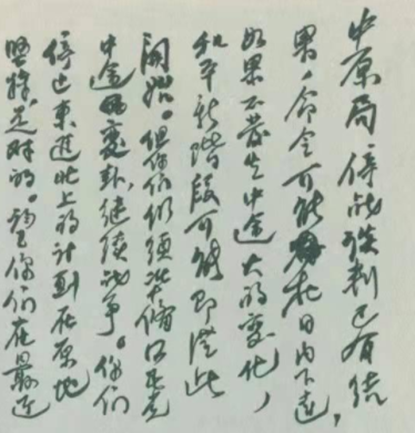 中原局停战谈判已有结
果，命令可能在日内下达，
如果不发生中途大的变化，
和平新階段可能即從此
開始。但你们仍须准備国民党
中途變卦，继续战争。你们
停止東進北上的计划在原地
坚持，是对的。望你们在最近